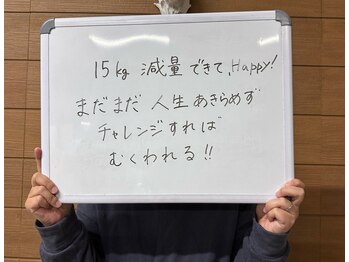 15kg 減量 できて、Happy!
まだまだ 人生 あきらめず
チャレンジすれば
むくわれる!!